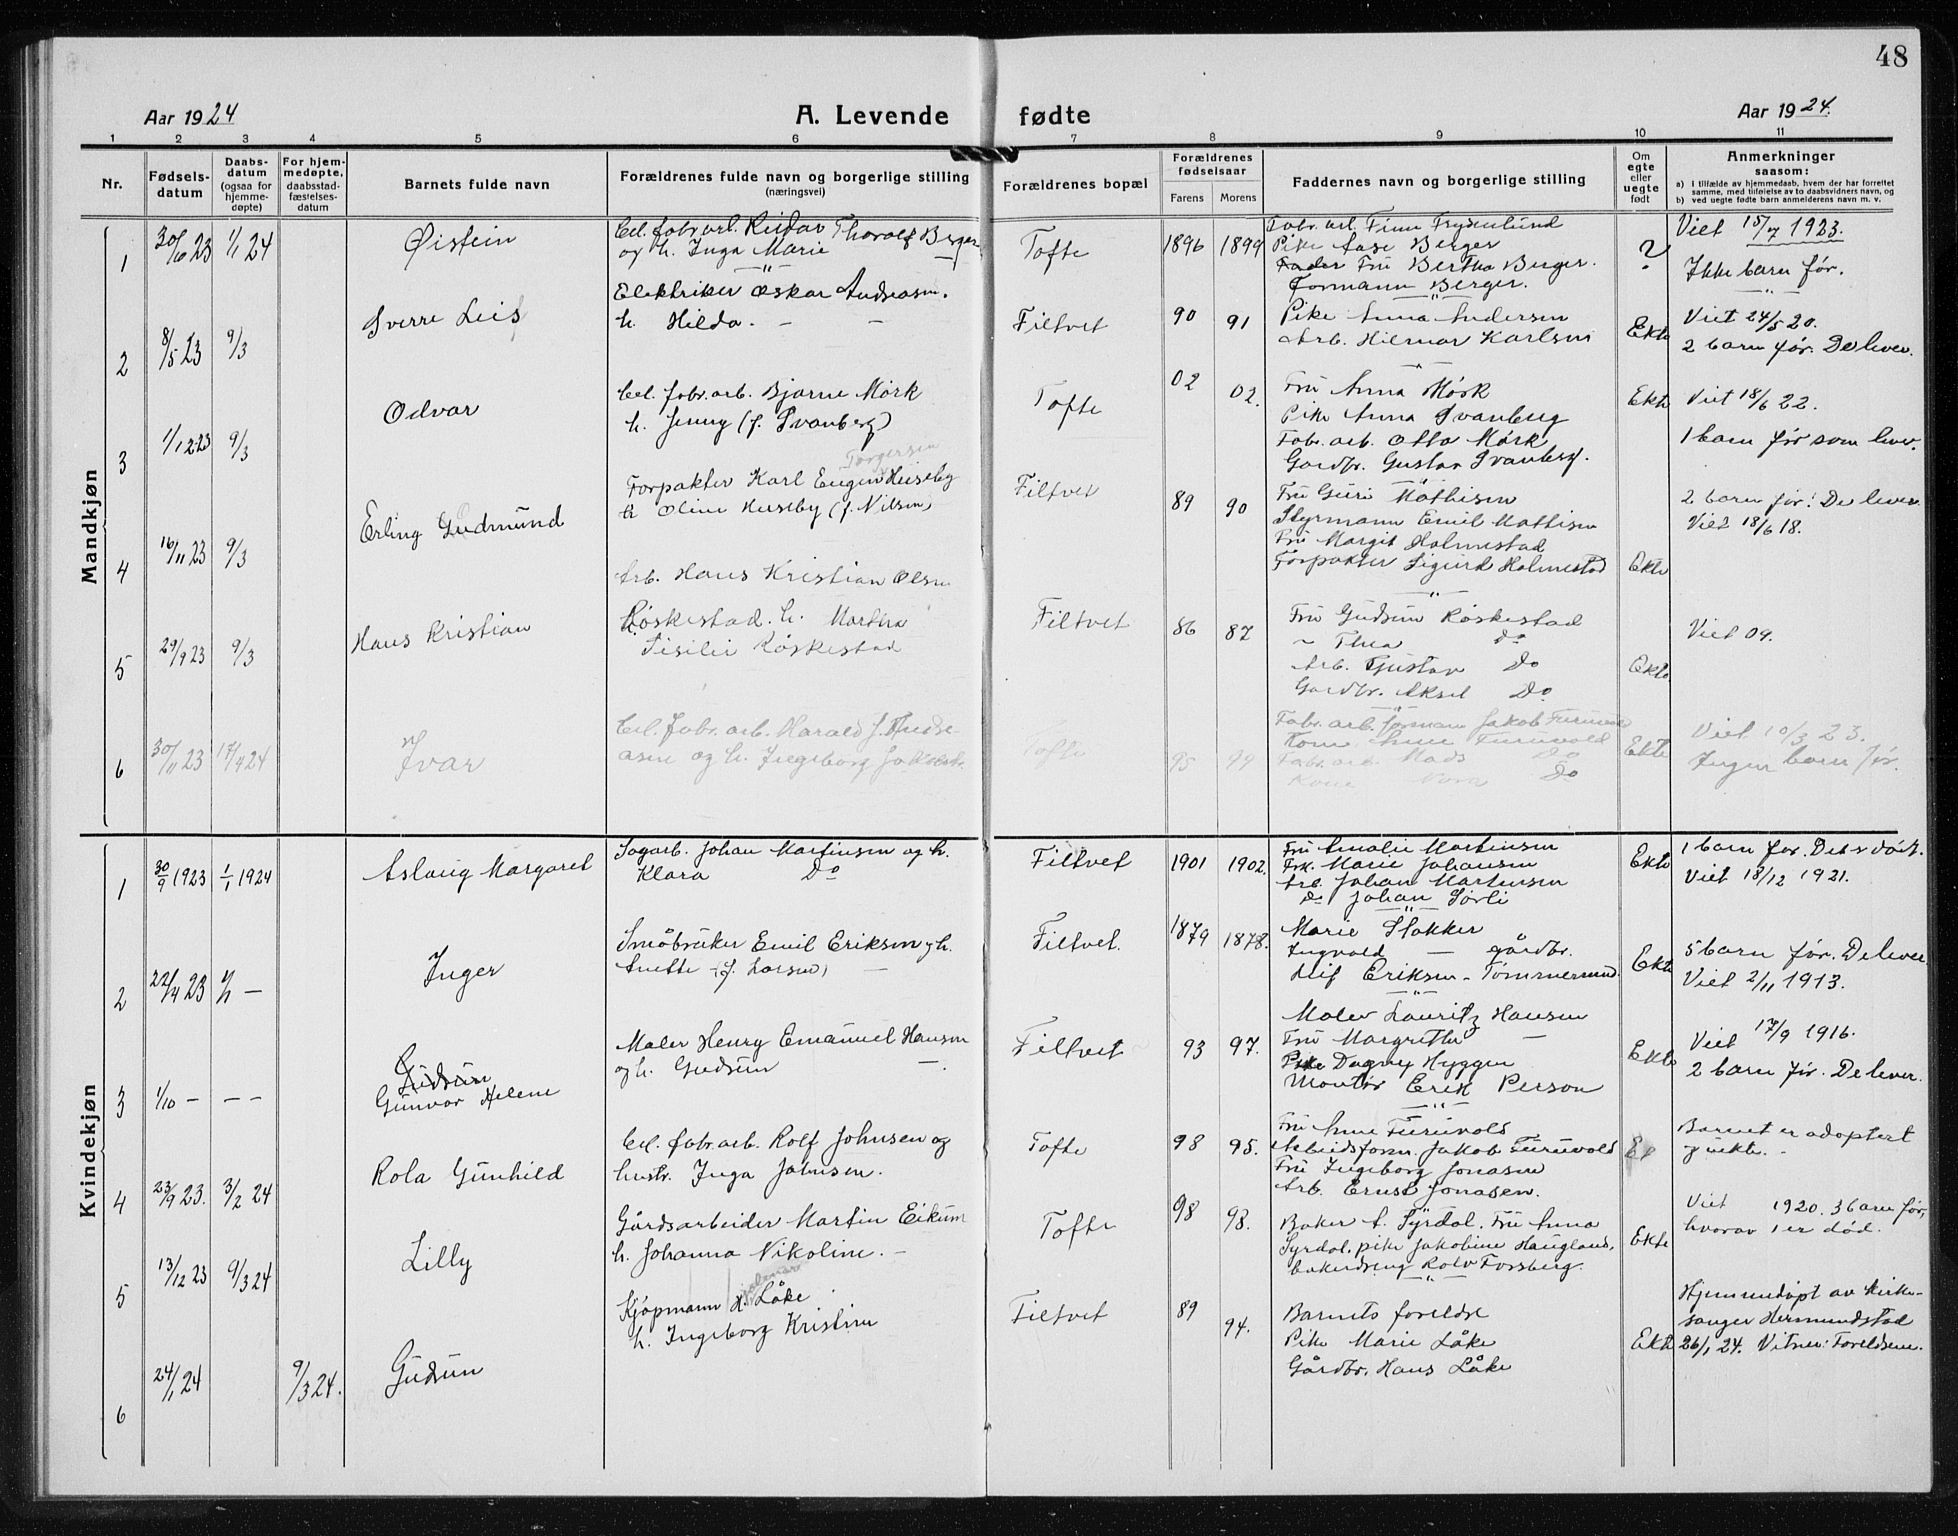 48
Aar 1924
A. Levende fødte
Aar 1924.
1 2 3 4 5 6 7 8 9 10 11
Nr.
Fødsels-
datum
Daabs-
datum
(ogsaa for
hjemme-
døpte)
For hjem-
medøpte,
daabsstad-
fæstelses-
datum
Barnets fulde navn
Forældrenes fulde navn og borgerlige stilling
(næringsvei)
Forældrenes bopæl
Forældrenes
fødselsaar
Farens
Morens
Faddernes navn og borgerlige stilling
Om
egte
eller
uegte
født
Anmerkninger
saasom:
a) i tilfælde av hjemmedaab, hvem der har forrettet
samme, med tilføielse av to daabsvidners navn, og
b) ved uegte fødte barn anmelderens navn m. v.
Mandkjøn
1
30/6 23
1/1 24
Øistein
Cel. fabr. arb. Reidar Thoralf Berger
og h. Inga Marie
Tofte
1896
1899
Fabr. arb. Finn Frydenlund
Pike Aase Berger
Fader Fru Bertha Berger.
Formann Berger.
?
Viet 15/7 1923.
Ikke barn før.
2
8/5 23
9/3
Sverre Leif
Elektriker Oskar Andreasen.
h. Hilda. — —
Filtvet
90
91
Pike Anna Andersen
Arb. Hilmar Karlsen
Ekte
Viet 24/5 20.
2 barn før. De lever.
3
1/12 23
9/3
Odvar
Cel. fabr. arb. Bjarne Mørk
h. Jenny (f. Svanberg)
Tofte
02
02.
Fru Anna Mørk
Pike Anna Svanberg
Fabr. arb. Otto Mørk
Gardbr. Gustav Svanberg.
Ekte
Viet 18/6 22.
1 barn før som lever.
4
16/11 23
9/3
Erling Gudmund
Torgersen
Forpakter Karl Eugen Huseby
h. Oline Huseby (f. Nilsen)
Filtvet
89
90
Fru Guri Mathisen
Styrmann Emil Mathisen
Fru Margit Holmestad
Forpakter Sigurd Holmestad
Ekte
2 barn før. De lever.
Viet 18/6 18.
5
29/9 23
9/3
Hans Kristian
Arb. Hans Kristian Olsen
Røskestad. h. Martha
Sisilie Røskestad
Filtvet
86
87
Fru Gudrun Røskestad
~ Thea Do
Arb. Gustav Do
Gardbr. Aksel Do
Ekte
Viet 09.
6
30/11 23
17/4 24
Ivar
Cel. fabr. arb. Harald J. Andre-
asen og h. Ingeborg
Tofte
95
99
Fabr. arb. forman Jakob Furuvold
Kone Anne Furuvold
Fabr. arb. Mads Do
Kone Nora Do
Ekte
Viet 10/3 23.
Ingen barn før.
Kvindekjøn
1
30/9 1923
1/1 1924
Aslaug Margaret
Sagarb. Johan Martinsen og h.
Klara Do
Filtvet
1901
1902.
Fru Amalie Martinsen
Frk. Marie Johansen
Arb. Johan Martinsen
Do Johan Sørli
Ekte
1 barn før. Det er død.
Viet 18/12 1921.
2
22/4 23
1/1 —
Inger
Småbruker Emil Eriksen og h.
Anette (f. Larsen) —
Filtvet.
1879
1878.
Marie Stokker
Ingvald — gårdbr.
Alif Eriksen - Tømmermand
Ekte
5 barn før. De lever.
Viet 2/11 1913.
3
1/10 —
— —
Gudrun
Gunvor Helene
Maler Henry Emanuel Hansen
og h. Gudrun —
Filtvet
93
97.
Maler Lauritz Hansen
Fru Margrethe —
Pike Dagny Hyggen
Montør Erik Person
Ekte
Viet 17/9 1916.
2 barn før. De lever.
4
23/9 23.
3/2 24
Rola Gunhild
Cel. fabr. arb. Rolf Johnsen og
hustr. Inga Johnsen.
Tofte
98
95.
Fru Anne Furuvold
Arbeidsform. Jakob Furuvold
Fru Ingeborg Jonasen
Arb. Ernst Jonasen.
Barnet er adoptert
5
13/12 23
9/3 24
Lilly
Gårdsarbeider Martin Eikum
h. Johanna Nikoline. —
Tofte
98
98.
Baker A. Syrdal. Fru Anna
Syrdal. pike Jakobine Haugland.
bakerdreng Rolv Forsberg.
Ekte
Viet 1920. 3 barn før,
hvorav 1 er død.
6
24/1 24
9/3 24.
Gudrun
Kjøpmann H. Låke
h. Ingeborg Kristine
Filtvet
89
94.
Barnets foreldre
Pike Marie Låke
Gårdbr. Hans Låke
Ekte
Hjemmedøpt av kirke-
sanger Hermundstad
26/1 24. Vitner: Foreldrene.